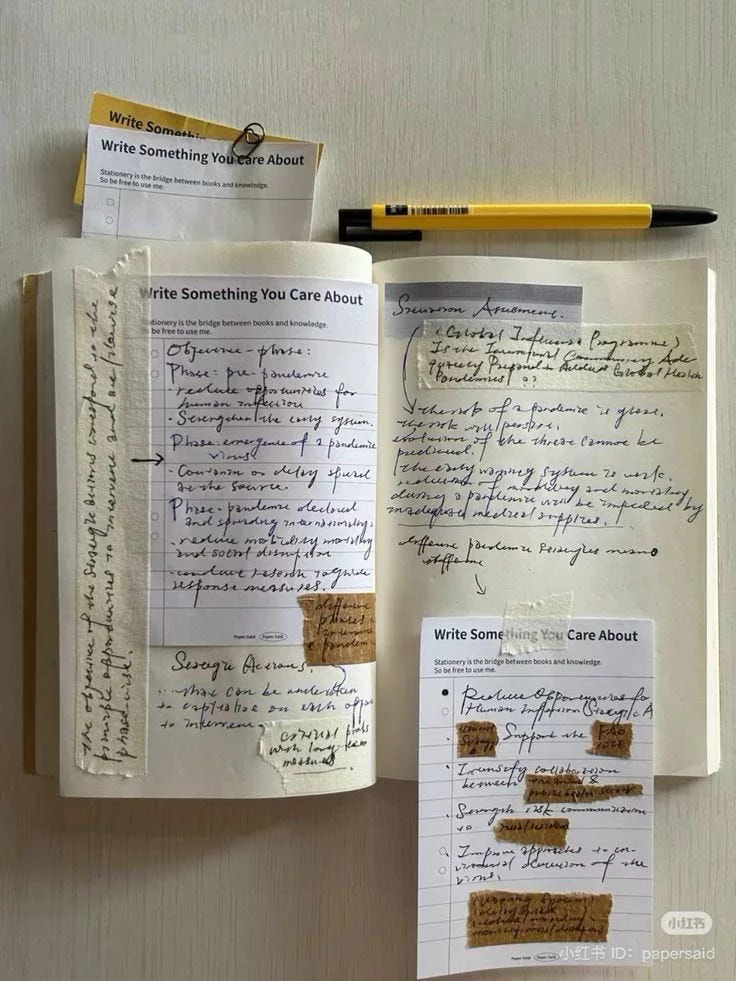 Write Somethin
Write Something You Care About
Stationery is the bridge between books and knowledge.
So be free to use me.
Write Something You Care About
Stationery is the bridge between books and knowledge.
be free to use me.
Objective - phase:
Phase: pre-pandemic
reduce opportunities for
human infection
Strengthen the early system.
Phase: emergence of a pandemic
virus
Contain or delay spread
at the source.
Phase: pandemic declared
and spreading internationally.
reduce morbidity mortality
and social disruption
conduct research to guide
response measures.
Paper Said Paper Said
different
phases
Strategic Actions.
that can be undertaken
to capitalise on each oppor
to intervene.
critical
with long-term
measures.
The objective of the strategic actions correspond to the
principle opportunities to intervene and are likewise
phase-wise.
Situation Assessment.
(Global Influenza Programme)
Is the International Community Ade
quately Prepared to Address Global Health
Pandemics ??
the risk of a pandemic is great.
the risk will persist.
evolution of the threat cannot be
predicted.
the early warning system is weak.
reduction of morbidity and mortality
during a pandemic will be impeded by
inadequate medical supplies.
different pandemic strategies
different
Write Something You Care About
Stationery is the bridge between books and knowledge.
So be free to use me.
Reduce Opportunities for
Human Infection (Strategic A
Support the FAO
Intensify collaboration
between
Strength risk communication
to
Improve approaches to en-
vironmental detection of the
virus.
Paper Said Paper Said
小红书
小红书 ID: papersaid